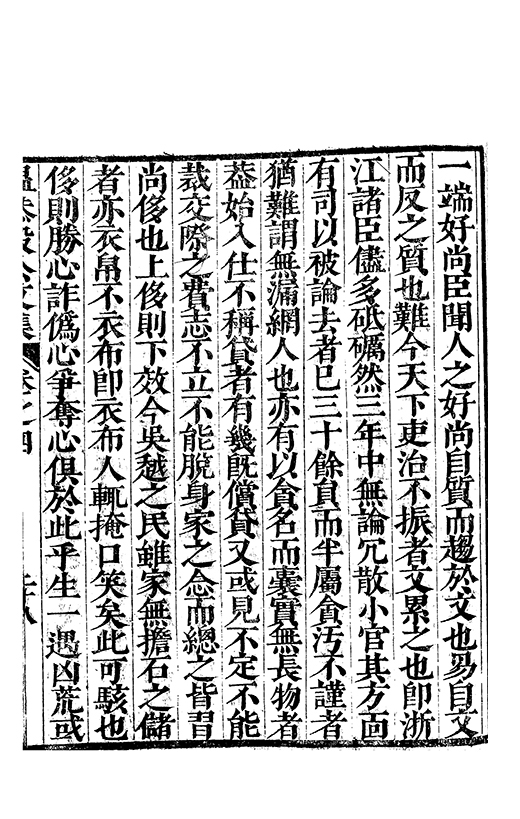 一端好尚臣聞人之好尚自質而趨於文也易自文
而反之質也難今天下吏治不振者文累之也卽浙
江諸臣儘多砥礪然三年中無論冗散小官其方面
有司以被論去者已三十餘員而半屬貪汚不謹者
猶難謂無漏網人也亦有以貪名而囊實無長物者
葢始入仕不稱貸者有幾旣償貸又或見不定不能
裁交際之費志不立不能脫身家之念而總之皆習
尚侈也上侈則下效今吳越之民雖家無擔石之儲
者亦衣帛不衣布卽衣布人輒掩口笑矣此可駭也
侈則勝心詐僞心爭奪心俱於此乎生一遇凶荒或
溫恭毅公文集 卷之四 二十八